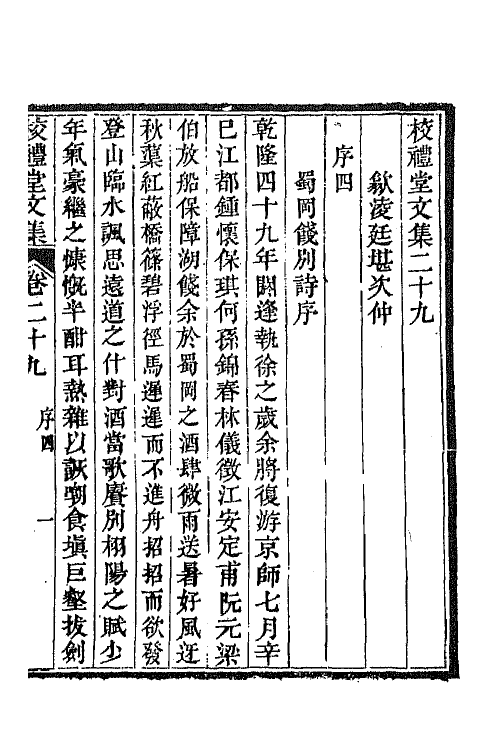 校禮堂文集二十九
歙淩廷堪次仲
序四
蜀岡餞別詩序
乾隆四十九年閼逢執徐之歲余將復游京師七月辛
巳江都鍾懷保琪何孫錦春林儀徵江安定甫阮元梁
伯放船保障湖餞余於蜀岡之酒肆微雨送暑好風迓
秋藥紅蔽橋篠碧浮徑馬遲遲而不進舟招招而欲發
登山臨水諷思遠道之什對酒當歌賡別栩陽之賦少
年氣豪繼之慷慨半酣耳熱雜以詼嘲食塡巨壑拔劍
校禮堂文集 卷二十九 序四 一